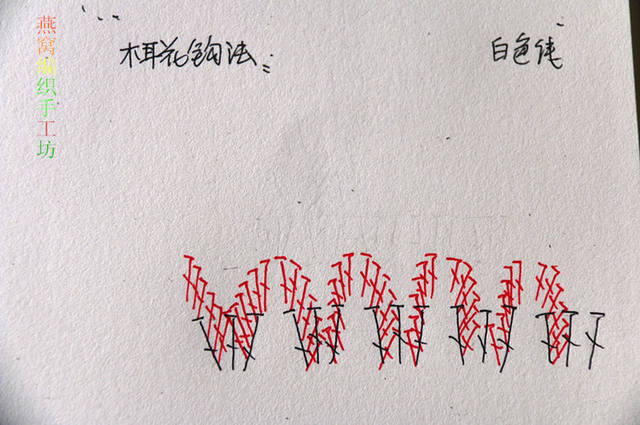 燕窝编织手工坊
木耳花钩法二
白色线